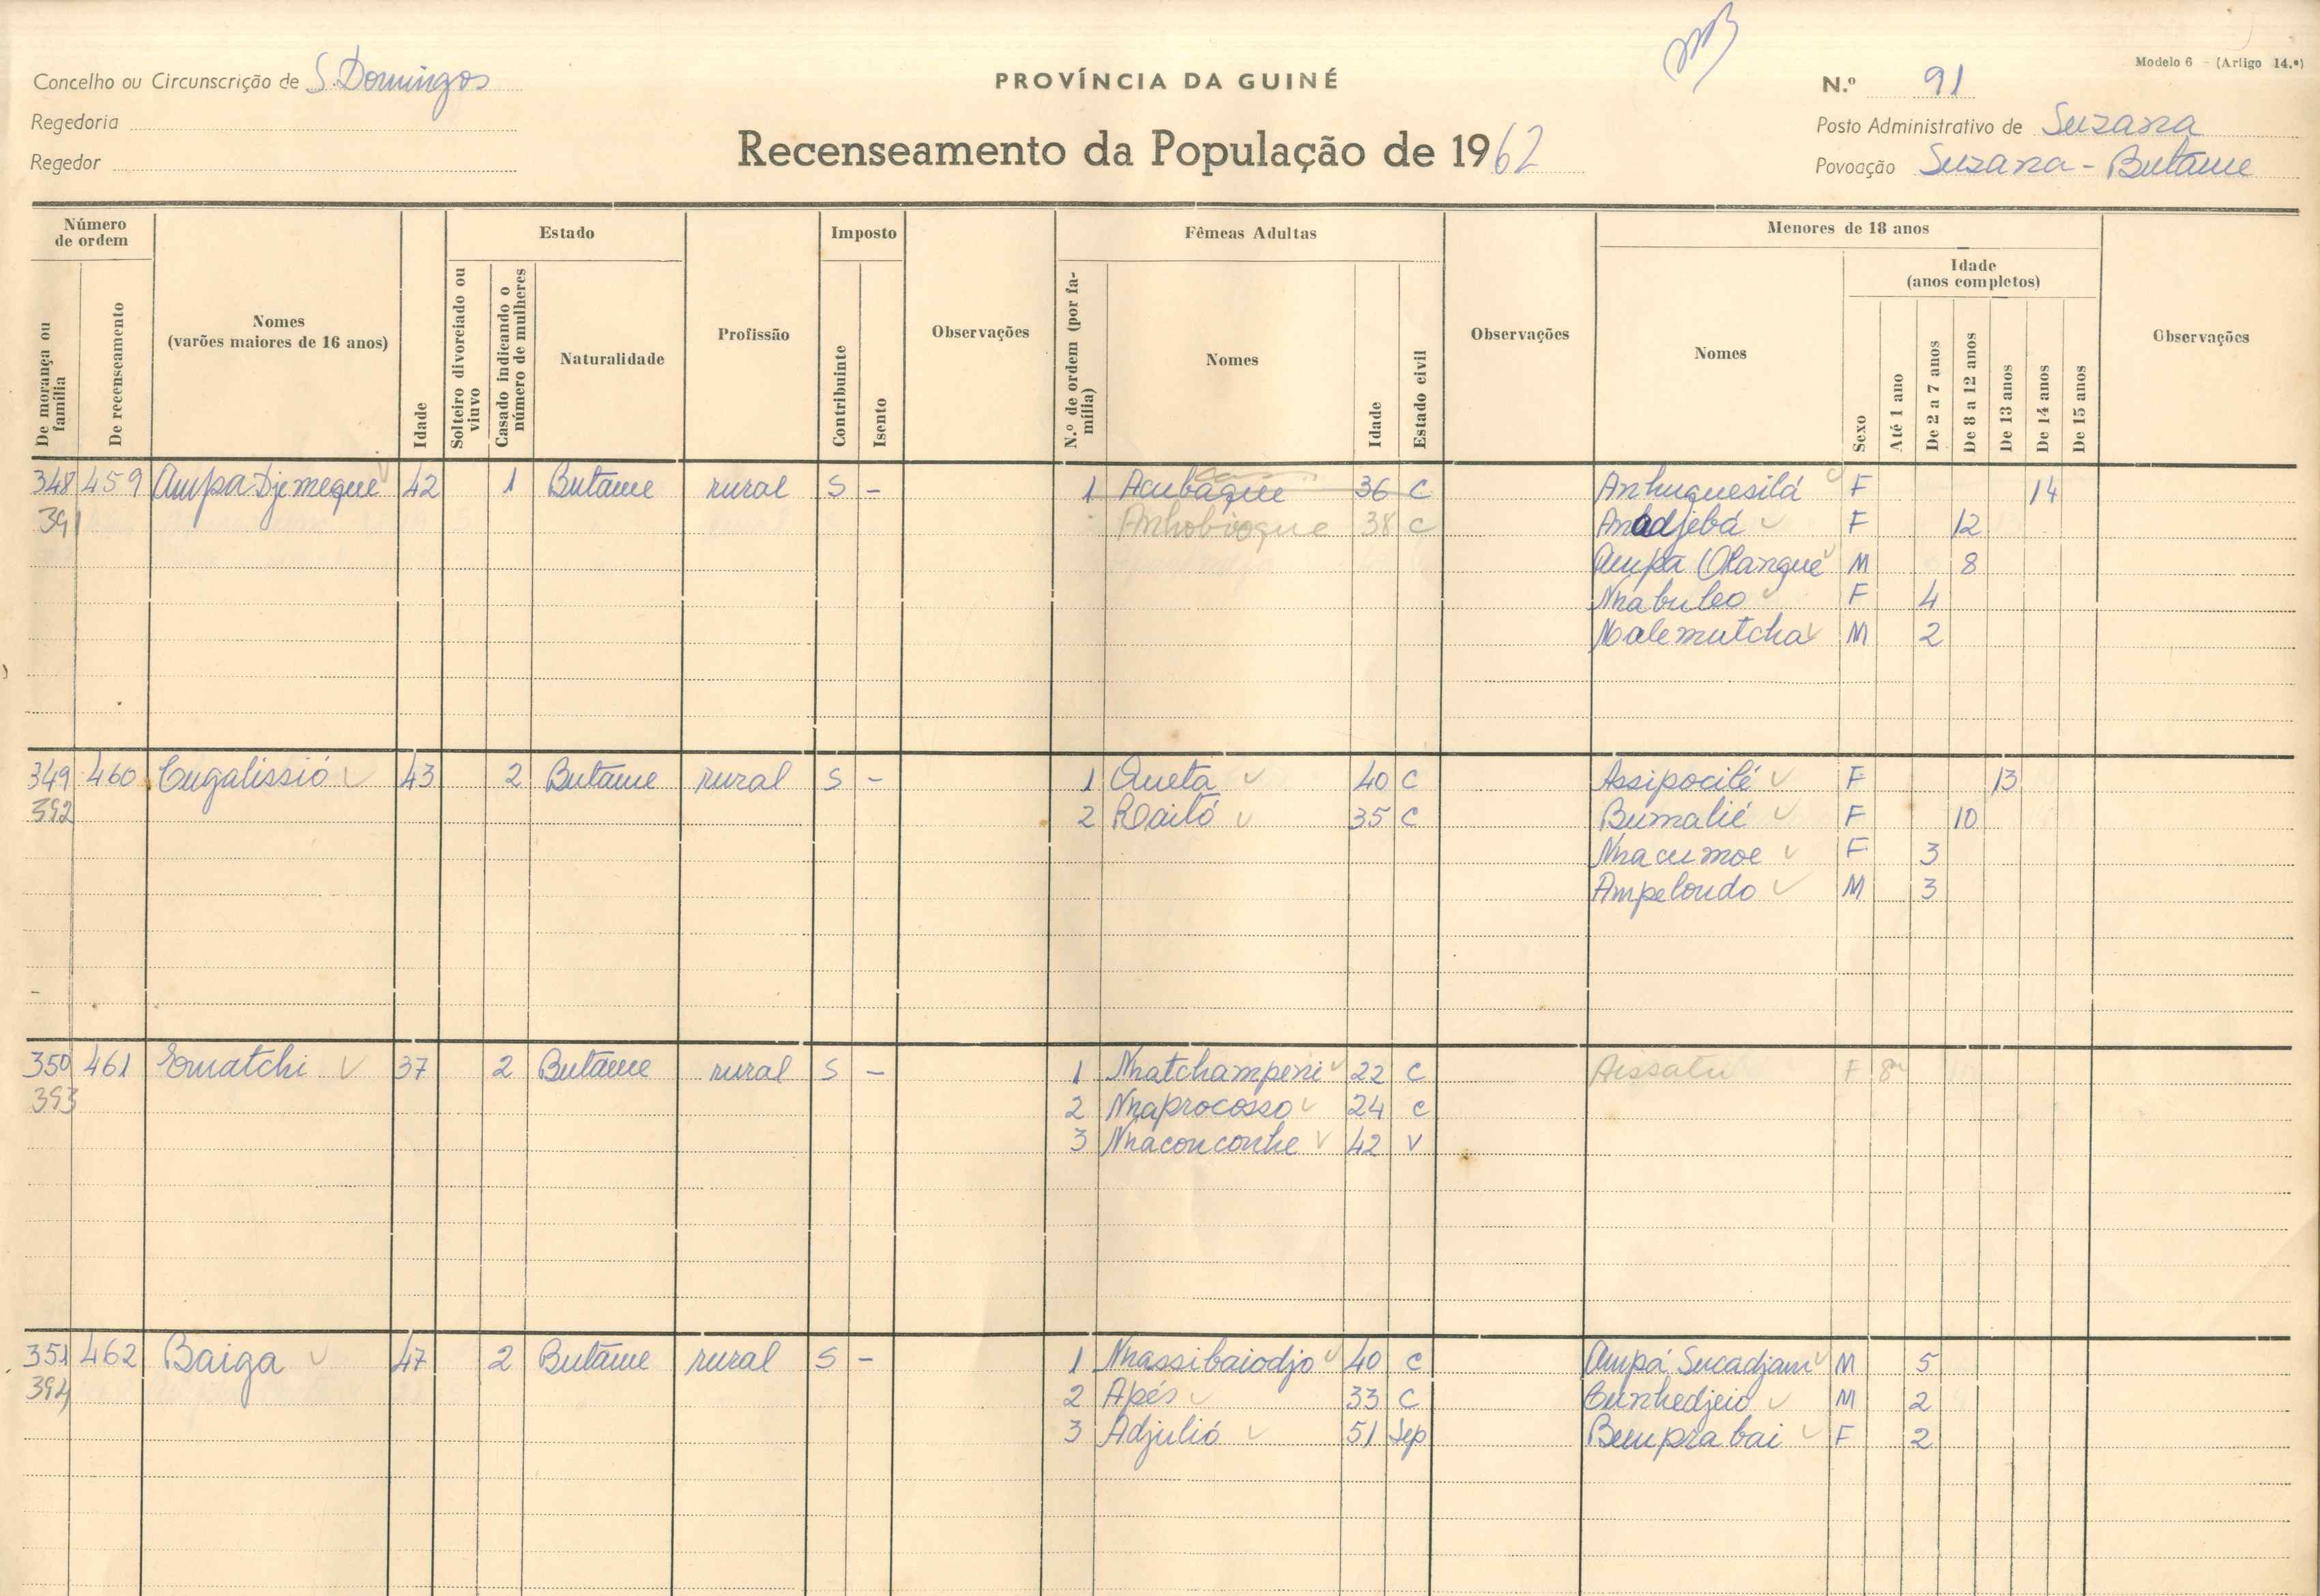 Modelo 6 - (Artigo 14.º)
Concelho ou Circunscrição de S. Domingos
PROVÍNCIA DA GUINÉ
N.º 91
Regedoria
Recenseamento da População de 1962
Posto Administrativo de Suzana
Regedor
Povoação Suzana - Butame
Número de ordem
Estado
Imposto
Fêmeas Adultas
Menores de 18 anos
Idade (anos completos)
De morança ou família
De recenseamento
Nomes (varões maiores de 16 anos)
Idade
Solteiro divorciado ou viuvo
Casado indicando o número de mulheres
Naturalidade
Profissão
Contribuinte
Isento
Observações
N.º de ordem (por família)
Nomes
Idade
Estado civil
Observações
Nomes
Sexo
Até 1 ano
De 2 a 7 anos
De 8 a 12 anos
De 13 anos
De 14 anos
De 15 anos
Observações
348 459 Ampa Djemeque 42 1 Butame rural S - 1 Acubaque 36 C Anhuquesilá F 14
391 Anhobioque 38 C Anadjebá F 12
Ampa Olangué M 8
Nhabuleo F 4
Malemutcha M 2
349 460 Cugalissió 43 2 Butame rural S - 1 Aueta 40 C Assipocilé F 13
392 2 35 C Bumalié F 10
Nhacumoe F 3
Ampelondo M 3
350 461 Ematchi 37 2 Butame rural S - 1 Nhatchampeni 22 C Aissatu F 8m
393 2 Nhaprocosso 24 C
3 Nhaconconhe 42 V
351 462 Baiga 47 2 Butame rural S - 1 Nhassibaiodjo 40 C Ampá Sucadjam M 5
394 2 Apés 33 C Cunhedjeio M 2
3 Adjulió 51 Sep Bumprabai F 2